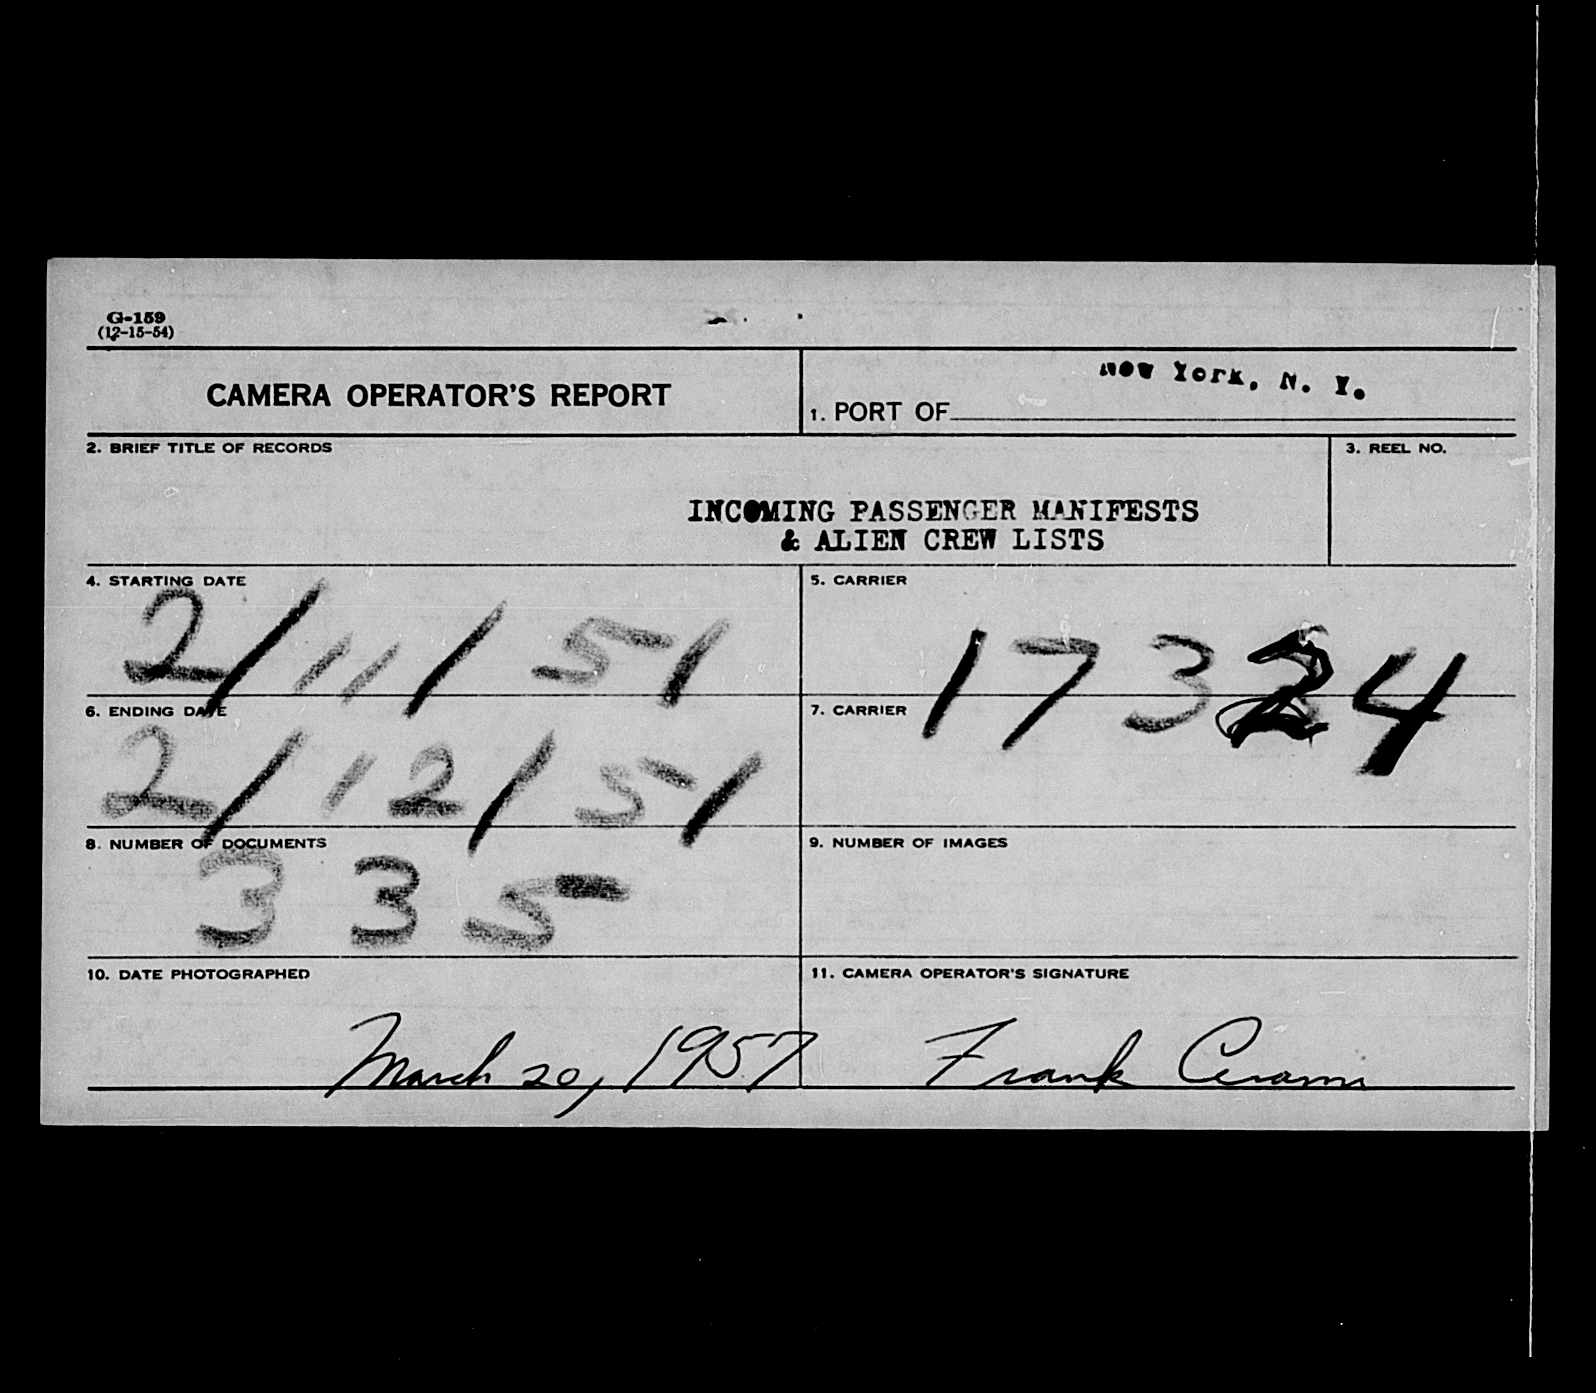 G-159
(12-15-54)
CAMERA OPERATOR'S REPORT
1. PORT OF New York, N. Y.
2. BRIEF TITLE OF RECORDS
3. REEL NO.
INCOMING PASSENGER MANIFESTS
& ALIEN CREW LISTS
4. STARTING DATE
2/11/51
5. CARRIER
17324
6. ENDING DATE
2/12/51
7. CARRIER
8. NUMBER OF DOCUMENTS
335
9. NUMBER OF IMAGES
10. DATE PHOTOGRAPHED
March 20, 1957
11. CAMERA OPERATOR'S SIGNATURE
Frank